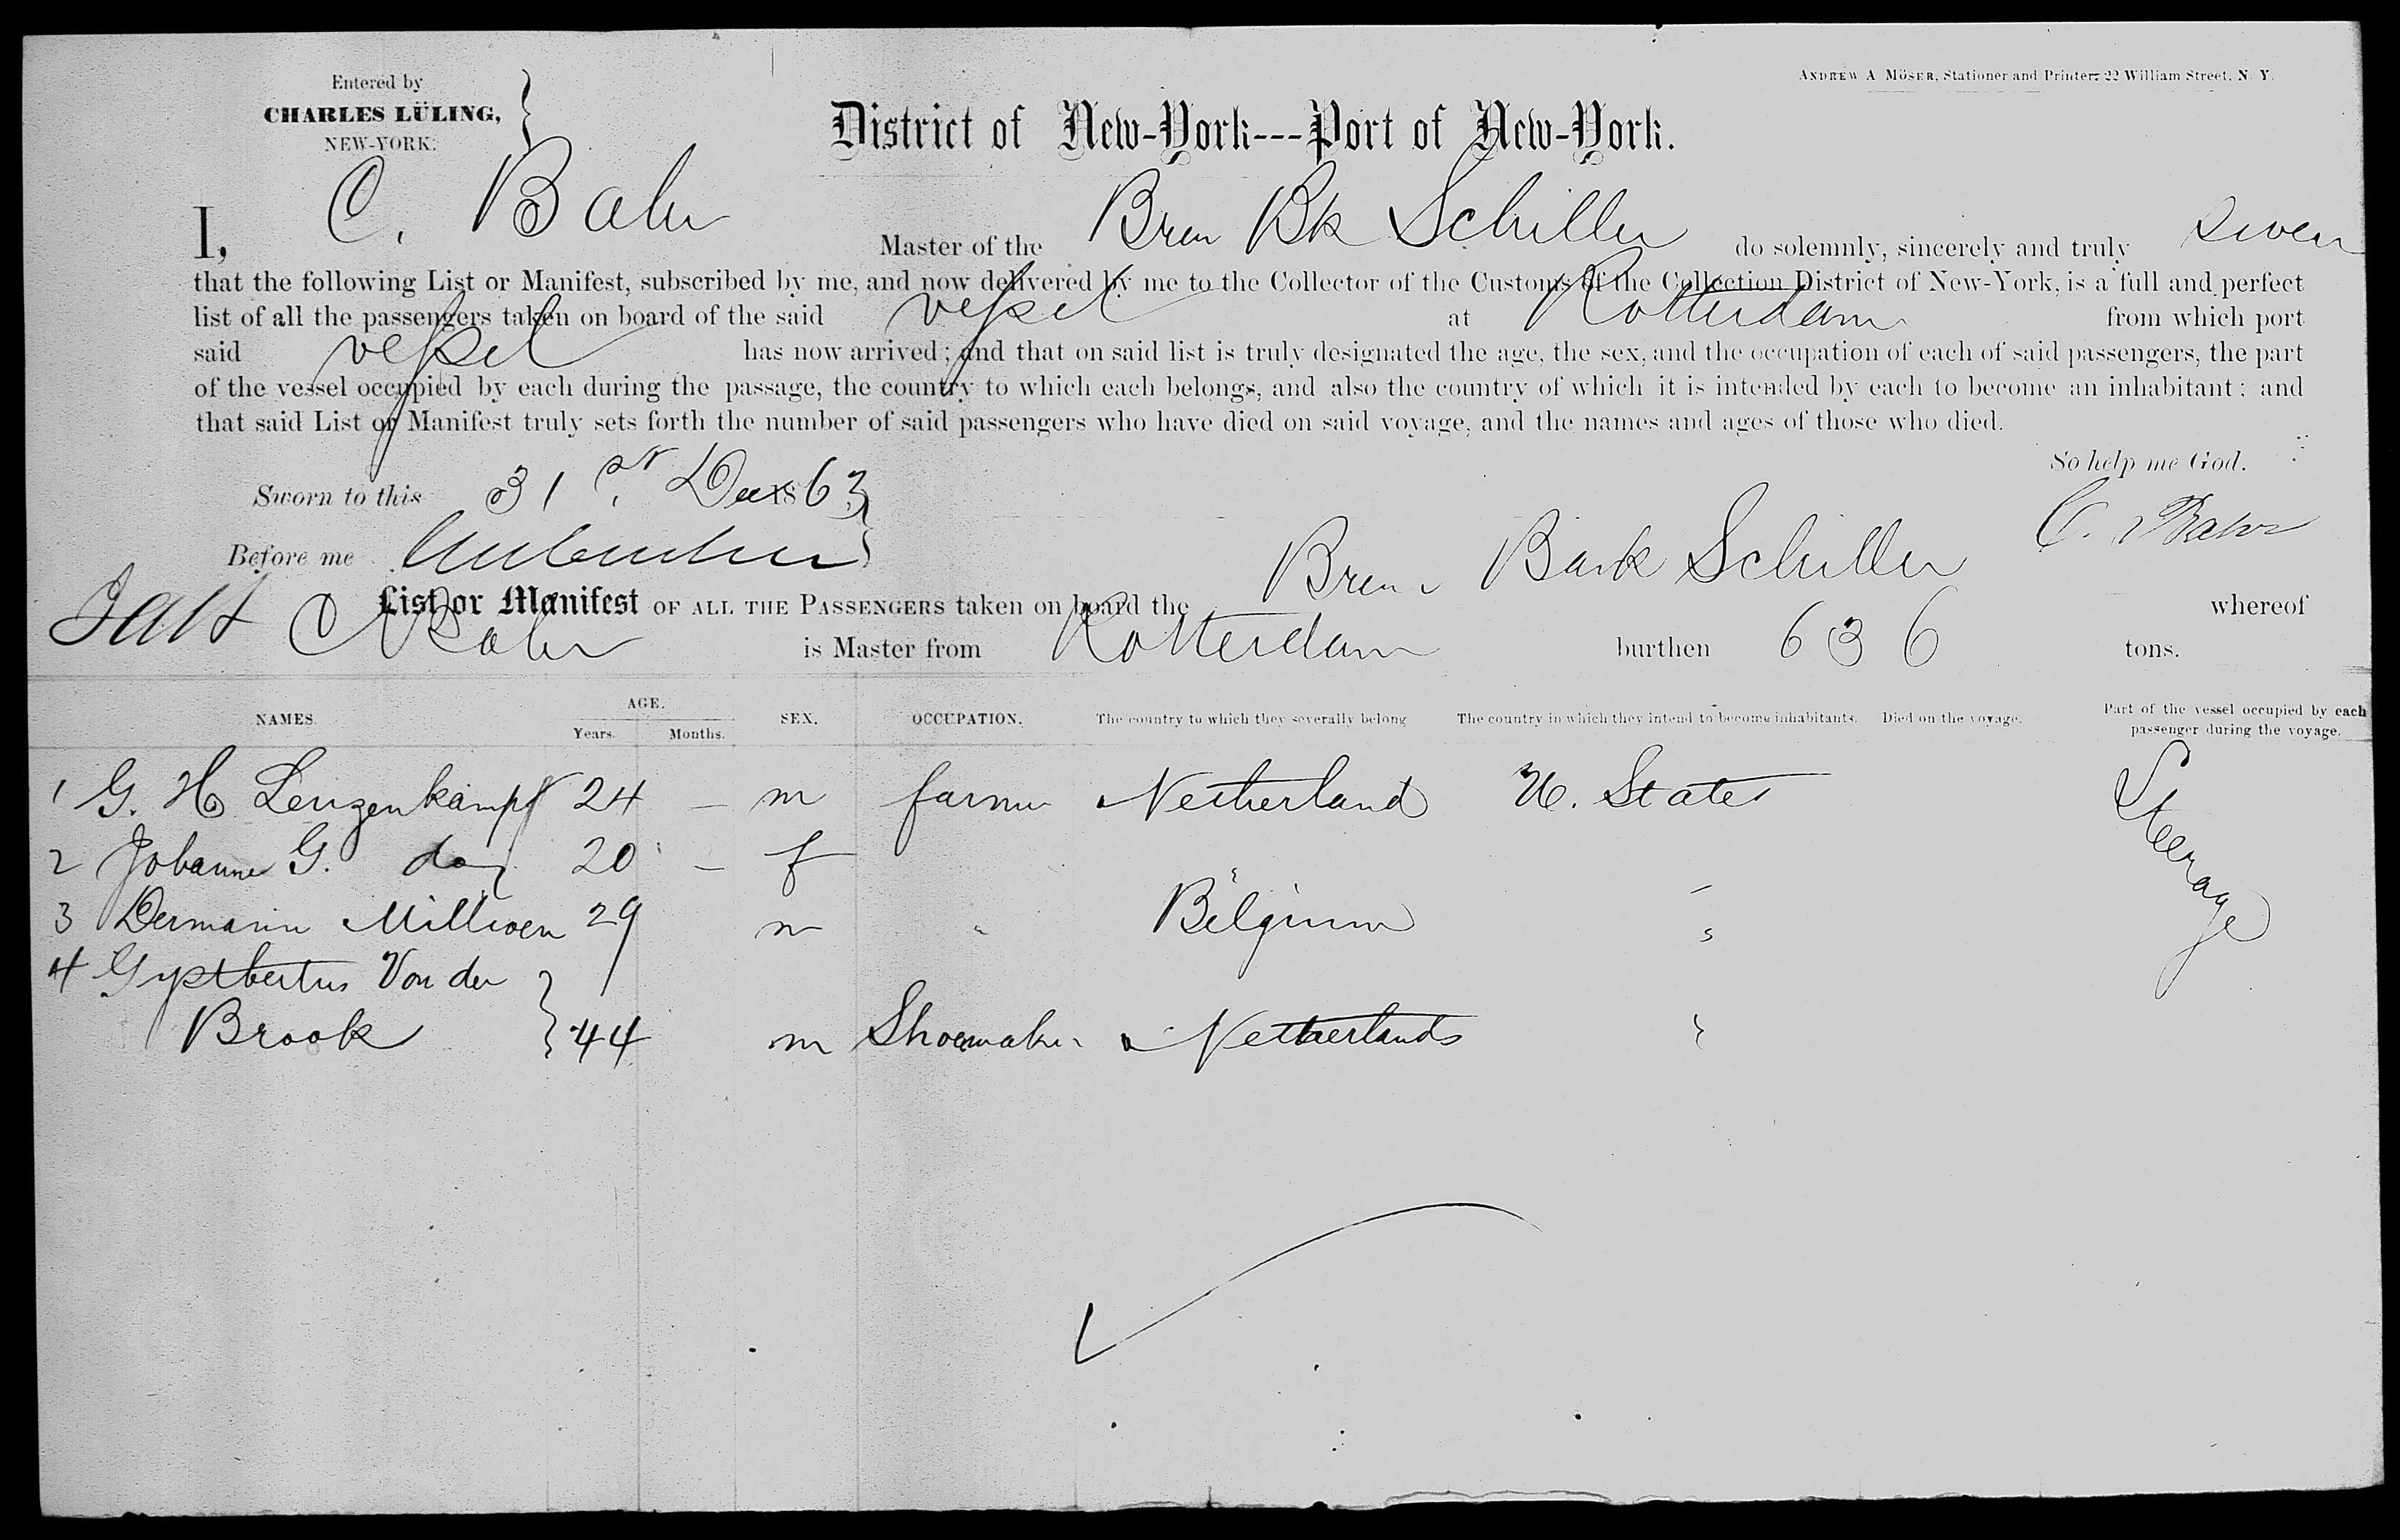 ANDREW A MÖSER, Stationer and Printer, 22 William Street, N. Y.
Entered by
CHARLES LÜLING,
NEW-YORK.
District of New-York---Port of New-York.
I, C. Bahr Master of the Brem Bk Schiller do solemnly, sincerely and truly swear
that the following List or Manifest, subscribed by me, and now delivered by me to the Collector of the Customs of the Collection District of New-York, is a full and perfect
list of all the passengers taken on board of the said vessel at Rotterdam from which port
said vessel has now arrived; and that on said list is truly designated the age, the sex, and the occupation of each of said passengers, the part
of the vessel occupied by each during the passage, the country to which each belongs, and also the country of which it is intended by each to become an inhabitant; and
that said List or Manifest truly sets forth the number of said passengers who have died on said voyage, and the names and ages of those who died.
So help me God.
Sworn to this 31st Dec 1863
C. Bahr
Before me
List or Manifest OF ALL THE PASSENGERS taken on board the Brem Bark Schiller whereof
C Bahr is Master from Rotterdam burthen 636 tons.
NAMES. AGE. SEX. OCCUPATION. The country to which they severally belong The country in which they intend to become inhabitants. Died on the voyage. Part of the vessel occupied by each passenger during the voyage.
Years. Months.
1 G. H. Lenzenkampf 24 — m farmer Netherland U. States Steerage
2 Johanne G. do 20 — f
3 Dermann Milliwen 29 m " Belgium "
4 Gysbertus Von der
Brook } 44 m Shoemaker Netherlands "